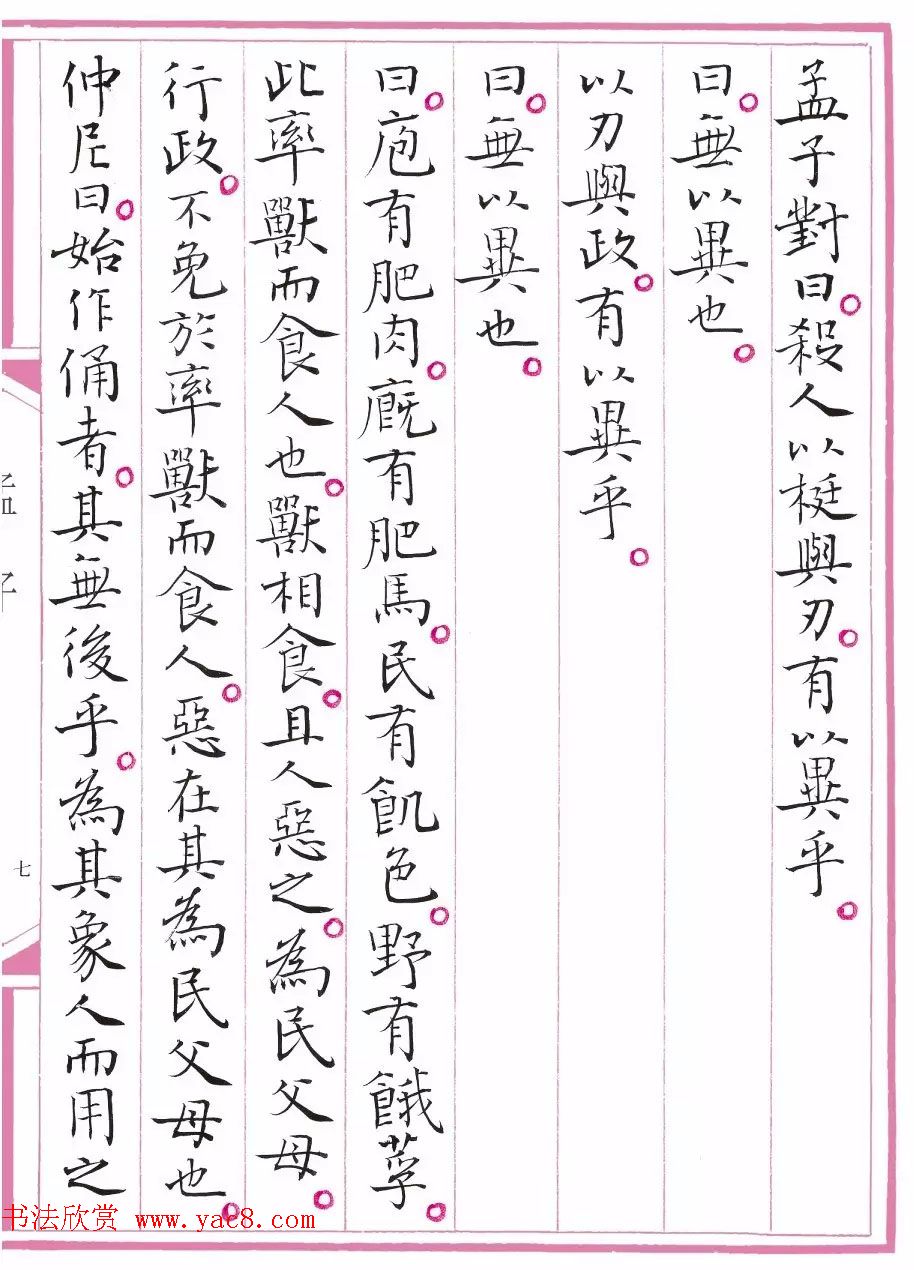 孟子對曰。殺人以梃與刃。有以異乎。
曰。無以異也。
以刃與政。有以異乎。
曰。無以異也。
曰。庖有肥肉。廐有肥馬。民有飢色。野有餓莩。
此率獸而食人也。獸相食。且人惡之。為民父母。
行政。不免於率獸而食人。惡在其為民父母也。
仲尼曰。始作俑者。其無後乎。為其象人而用之
孟子
七
书法欣赏 www.yac8.com